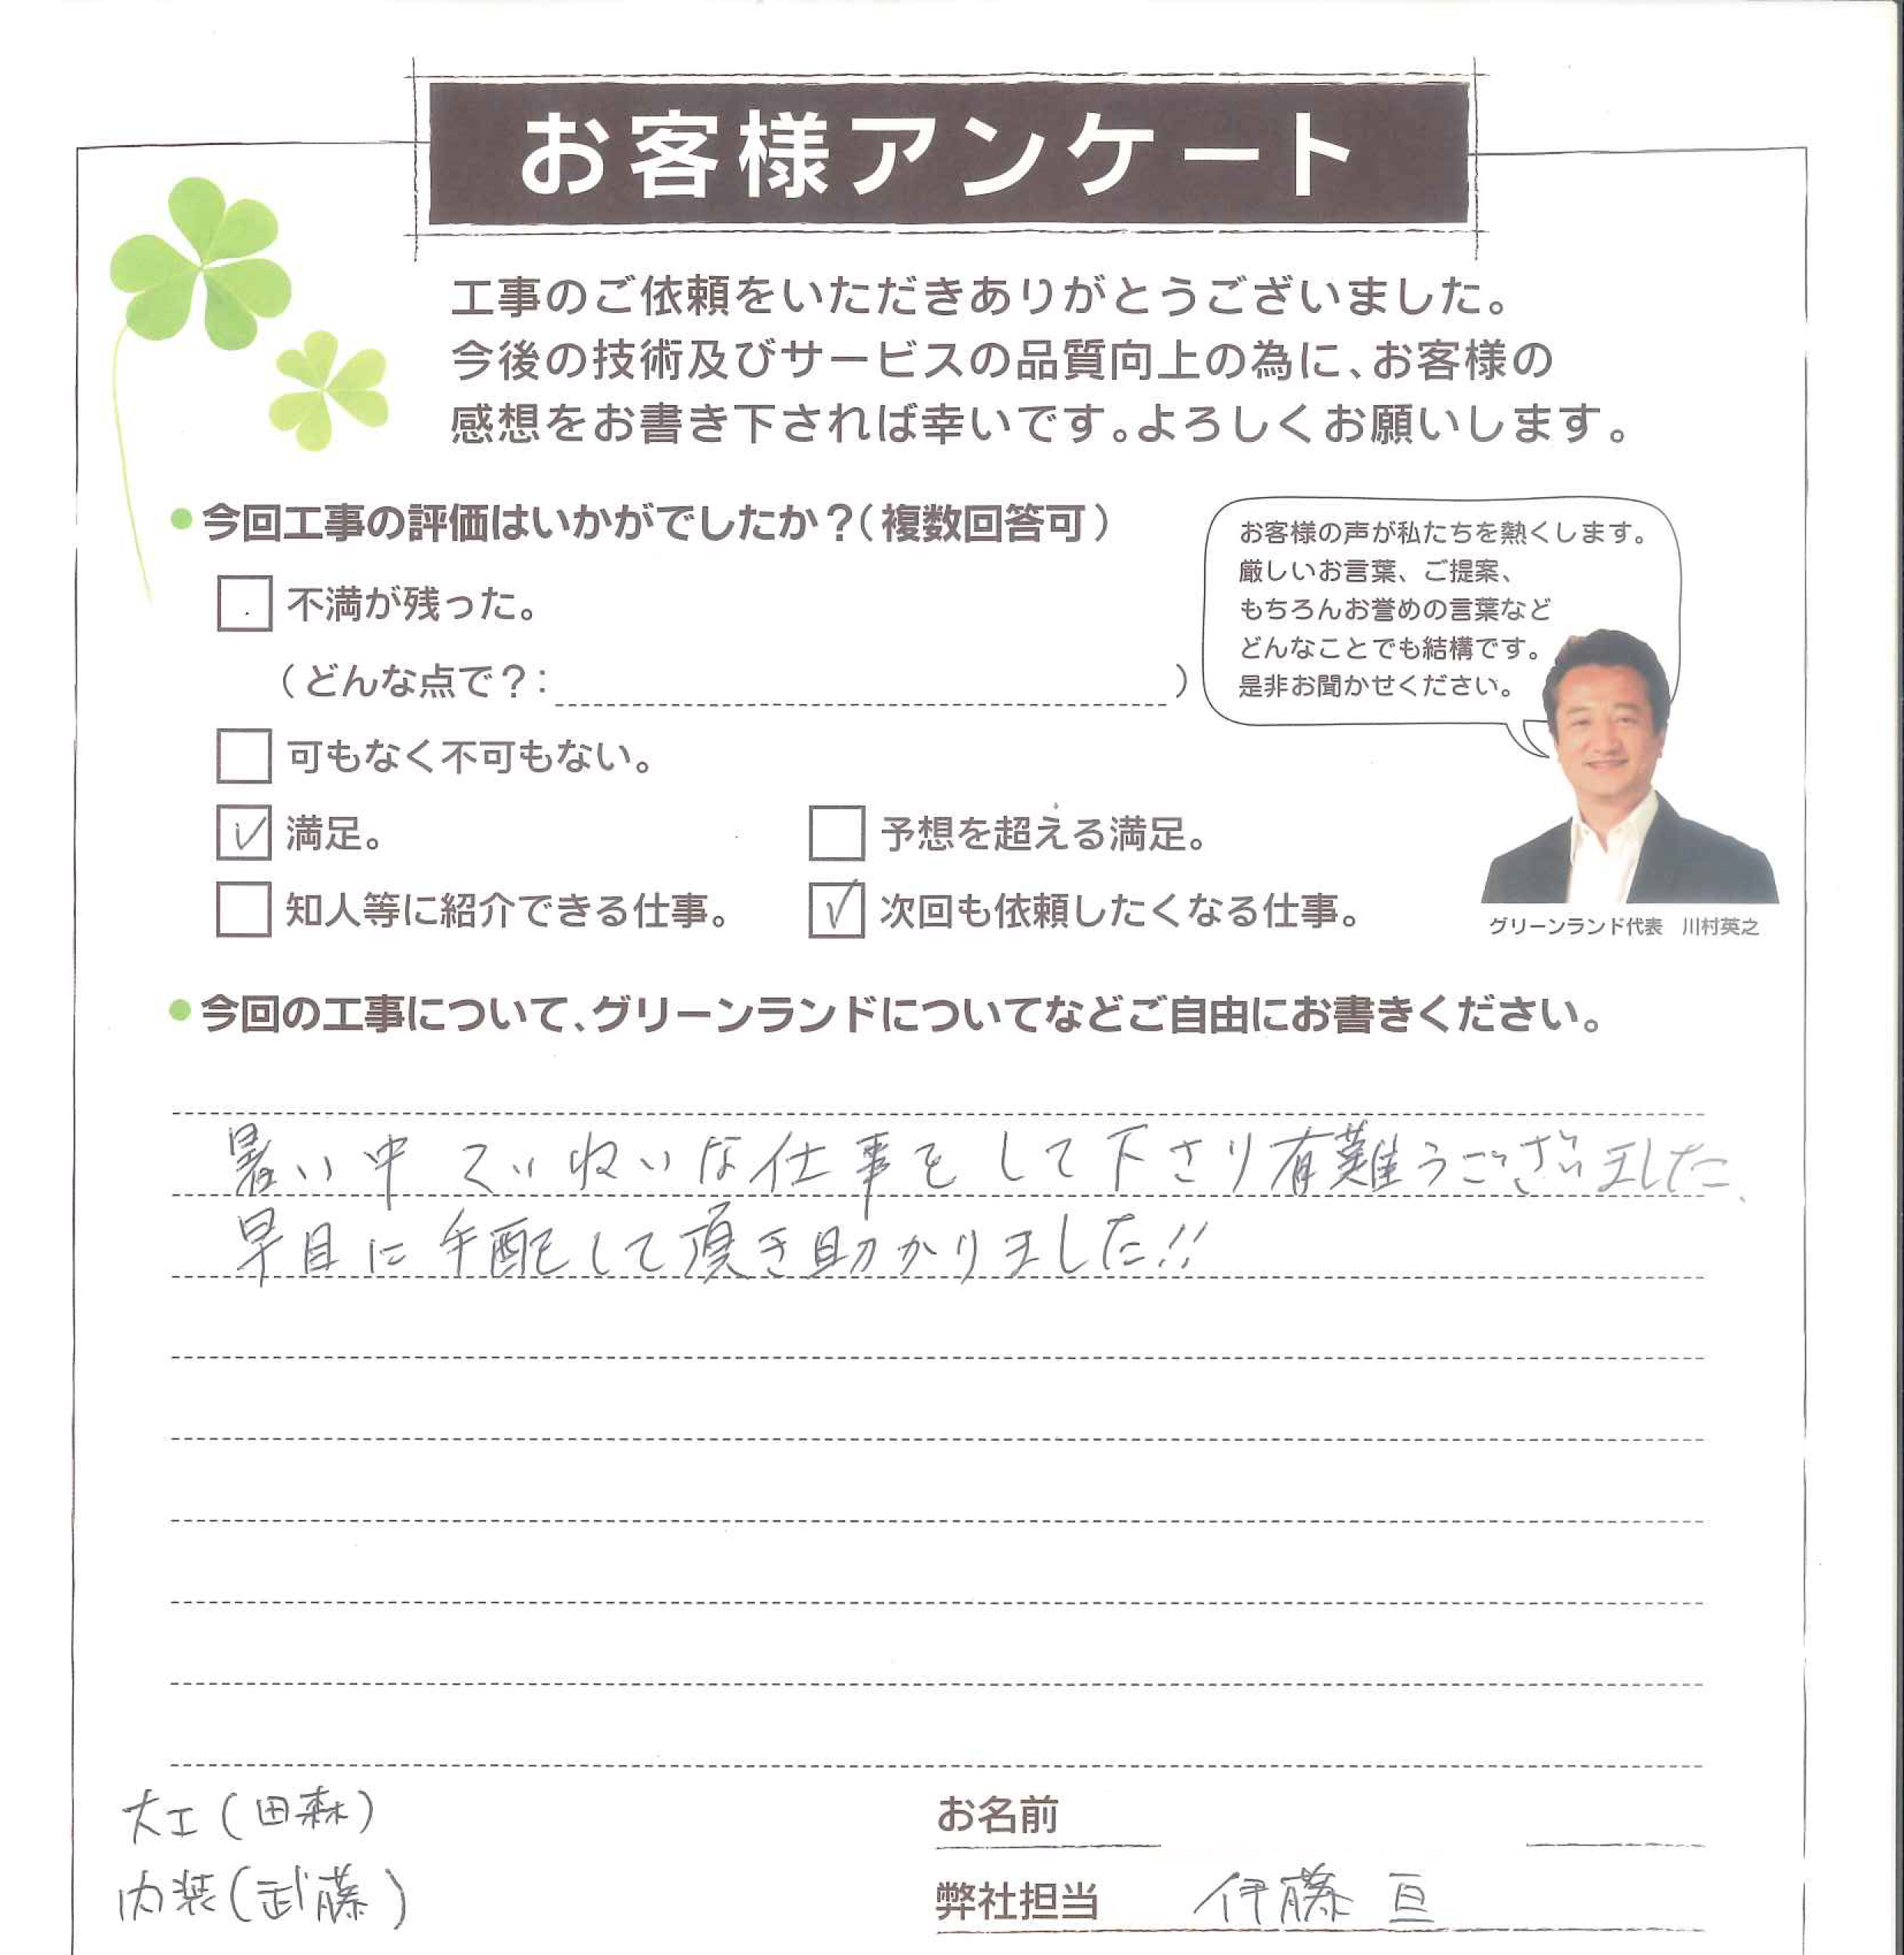 お客様アンケート
工事のご依頼をいただきありがとうございました。
今後の技術及びサービスの品質向上の為に、お客様の
感想をお書き下されば幸いです。よろしくお願いします。
●今回工事の評価はいかがでしたか？(複数回答可)
不満が残った。
(どんな点で？: )
可もなく不可もない。
✓ 満足。
予想を超える満足。
知人等に紹介できる仕事。
✓ 次回も依頼したくなる仕事。
お客様の声が私たちを熱くします。
厳しいお言葉、ご提案、
もちろんお誉めの言葉など
どんなことでも結構です。
是非お聞かせください。
グリーンランド代表 川村英之
●今回の工事について、グリーンランドについてなどご自由にお書きください。
暑い中 ていねいな仕事をして下さり有難うございました、
早目に手配して頂き助かりました!!
大工(田森)
内装(武藤)
お名前
弊社担当 伊藤 亘